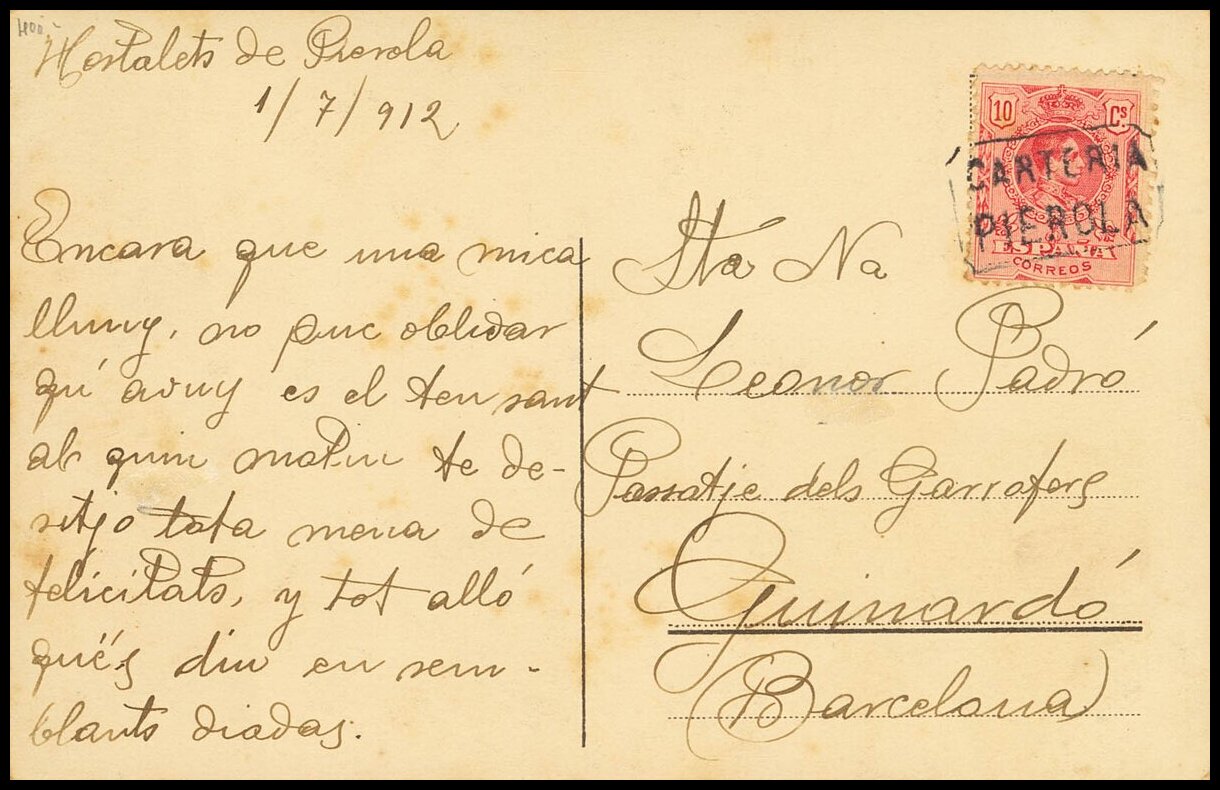 Hostalets de Pierola
1/7/912
Encara que una mica
lluny, no puc oblidar
qu' avuy es el teu sant
ab quin motiu te de-
sitjo tota mena de
felicitats, y tot alló
qué's diu en sem-
blants diadas.
10 Cs
CARTERIA
PIEROLA
ESPAÑA
CORREOS
Sta Na
Leonor Padró
Passatje dels Garrofers
Guinardó
(Barcelona)